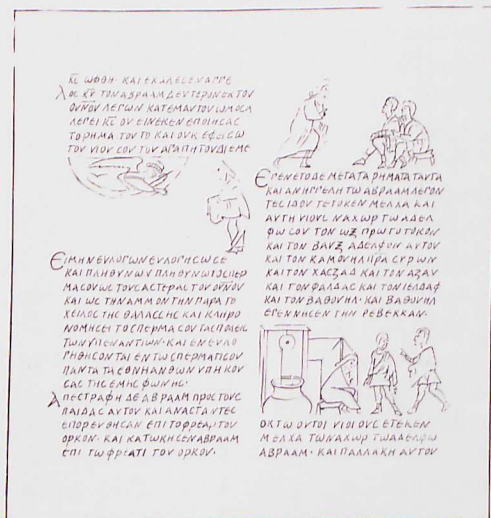 Κ̅C̅ ΩΦΘΗ· ΚΑΙ ΕΚΑΛΕCΕΝ ΑΓΓΕ
ΛΟC Κ̅Υ̅ ΤΟΝ ΑΒΡΑΑΜ ΔΕΥΤΕΡΟΝ ΕΚ ΤΟΥ
ΟΥ̅Ν̅ΟΥ ΛΕΓΩΝ ΚΑΤ ΕΜΑΥΤΟΥ ΩΜΟCΑ
ΛΕΓΕΙ Κ̅C̅ ΟΥ ΕΙΝΕΚΕΝ ΕΠΟΙΗCΑC
ΤΟ ΡΗΜΑ ΤΟΥΤΟ ΚΑΙ ΟΥΚ ΕΦΕΙCΩ
ΤΟΥ ΥΙΟΥ CΟΥ ΤΟΥ ΑΓΑΠΗΤΟΥ ΔΙ ΕΜΕ
ΕΙ ΜΗΝ ΕΥΛΟΓΩΝ ΕΥΛΟΓΗCΩ CΕ
ΚΑΙ ΠΛΗΘΥΝΩΝ ΠΛΗΘΥΝΩ ΤΟ CΠΕΡ
ΜΑ CΟΥ ΩC ΤΟΥC ΑCΤΕΡΑC ΤΟΥ ΟΥ̅Ν̅ΟΥ
ΚΑΙ ΩC ΤΗΝ ΑΜΜΟΝ ΤΗΝ ΠΑΡΑ ΤΟ
ΧΕΙΛΟC ΤΗC ΘΑΛΑCCΗC ΚΑΙ ΚΛΗΡΟ
ΝΟΜΗCΕΙ ΤΟ CΠΕΡΜΑ CΟΥ ΤΑC ΠΟΛΕΙC
ΤΩΝ ΥΠΕΝΑΝΤΙΩΝ· ΚΑΙ ΕΝΕΥΛΟ
ΓΗΘΗCΟΝΤΑΙ ΕΝ ΤΩ CΠΕΡΜΑΤΙ CΟΥ
ΠΑΝΤΑ ΤΑ ΕΘΝΗ ΑΝΘ ΩΝ ΥΠΗΚΟΥ
CΑC ΤΗC ΕΜΗC ΦΩΝΗC·
ΑΠΕCΤΡΑΦΗ ΔΕ ΑΒΡΑΑΜ ΠΡΟC ΤΟΥC
ΠΑΙΔΑC ΑΥΤΟΥ ΚΑΙ ΑΝΑCΤΑΝΤΕC
ΕΠΟΡΕΥΘΗCΑΝ ΕΠΙ ΤΟ ΦΡΕΑΡ ΤΟΥ
ΟΡΚΟΥ· ΚΑΙ ΚΑΤΩΚΗCΕΝ ΑΒΡΑΑΜ
ΕΠΙ ΤΩ ΦΡΕΑΤΙ ΤΟΥ ΟΡΚΟΥ·
ΕΓΕΝΕΤΟ ΔΕ ΜΕΤΑ ΤΑ ΡΗΜΑΤΑ ΤΑΥΤΑ
ΚΑΙ ΑΝΗΓΓΕΛΗ ΤΩ ΑΒΡΑΑΜ ΛΕΓΟΝ
ΤΕC ΙΔΟΥ ΤΕΤΟΚΕΝ ΜΕΛΧΑ ΚΑΙ
ΑΥΤΗ ΥΙΟΥC ΝΑΧΩΡ ΤΩ ΑΔΕΛ
ΦΩ CΟΥ ΤΟΝ ΩΞ ΠΡΩΤΟΤΟΚΟΝ
ΚΑΙ ΤΟΝ ΒΑΥΞ ΑΔΕΛΦΟΝ ΑΥΤΟΥ
ΚΑΙ ΤΟΝ ΚΑΜΟΥΗΛ ΠΡΑ CΥΡΩΝ
ΚΑΙ ΤΟΝ ΧΑCΖΑΔ ΚΑΙ ΤΟΝ ΑΖΑΥ
ΚΑΙ ΤΟΝ ΦΑΛΔΑC ΚΑΙ ΤΟΝ ΙΕΛΔΑΦ
ΚΑΙ ΤΟΝ ΒΑΘΟΥΗΛ· ΚΑΙ ΒΑΘΟΥΗΛ
ΕΓΕΝΝΗCΕΝ ΤΗΝ ΡΕΒΕΚΚΑΝ·
ΟΚΤΩ ΟΥΤΟΙ ΥΙΟΙ ΟΥC ΕΤΕΚΕΝ
ΜΕΛΧΑ ΤΩ ΝΑΧΩΡ ΤΩ ΑΔΕΛΦΩ
ΑΒΡΑΑΜ· ΚΑΙ ΠΑΛΛΑΚΗ ΑΥΤΟΥ